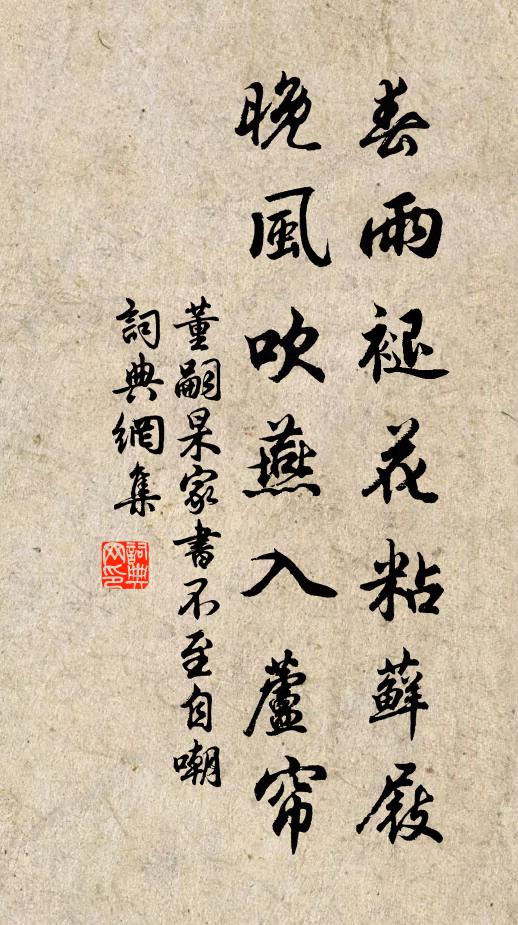 春雨褪花粘蘚屐
晚風吹燕入蘆帘
董嗣杲家書不至自嘲
詞典網集
詞典網印